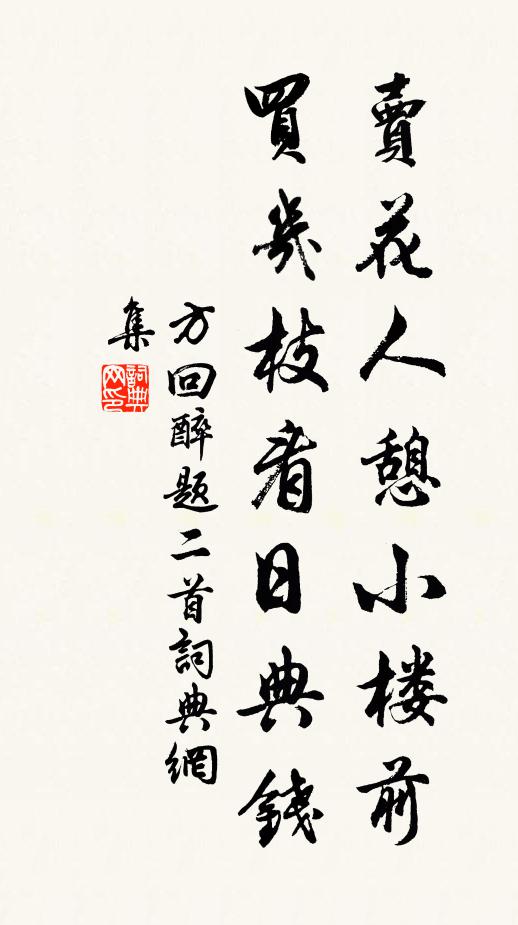 賣花人憩小楼前
買幾枝看日典錢
方回醉题二首詞典網
集
詞典网印